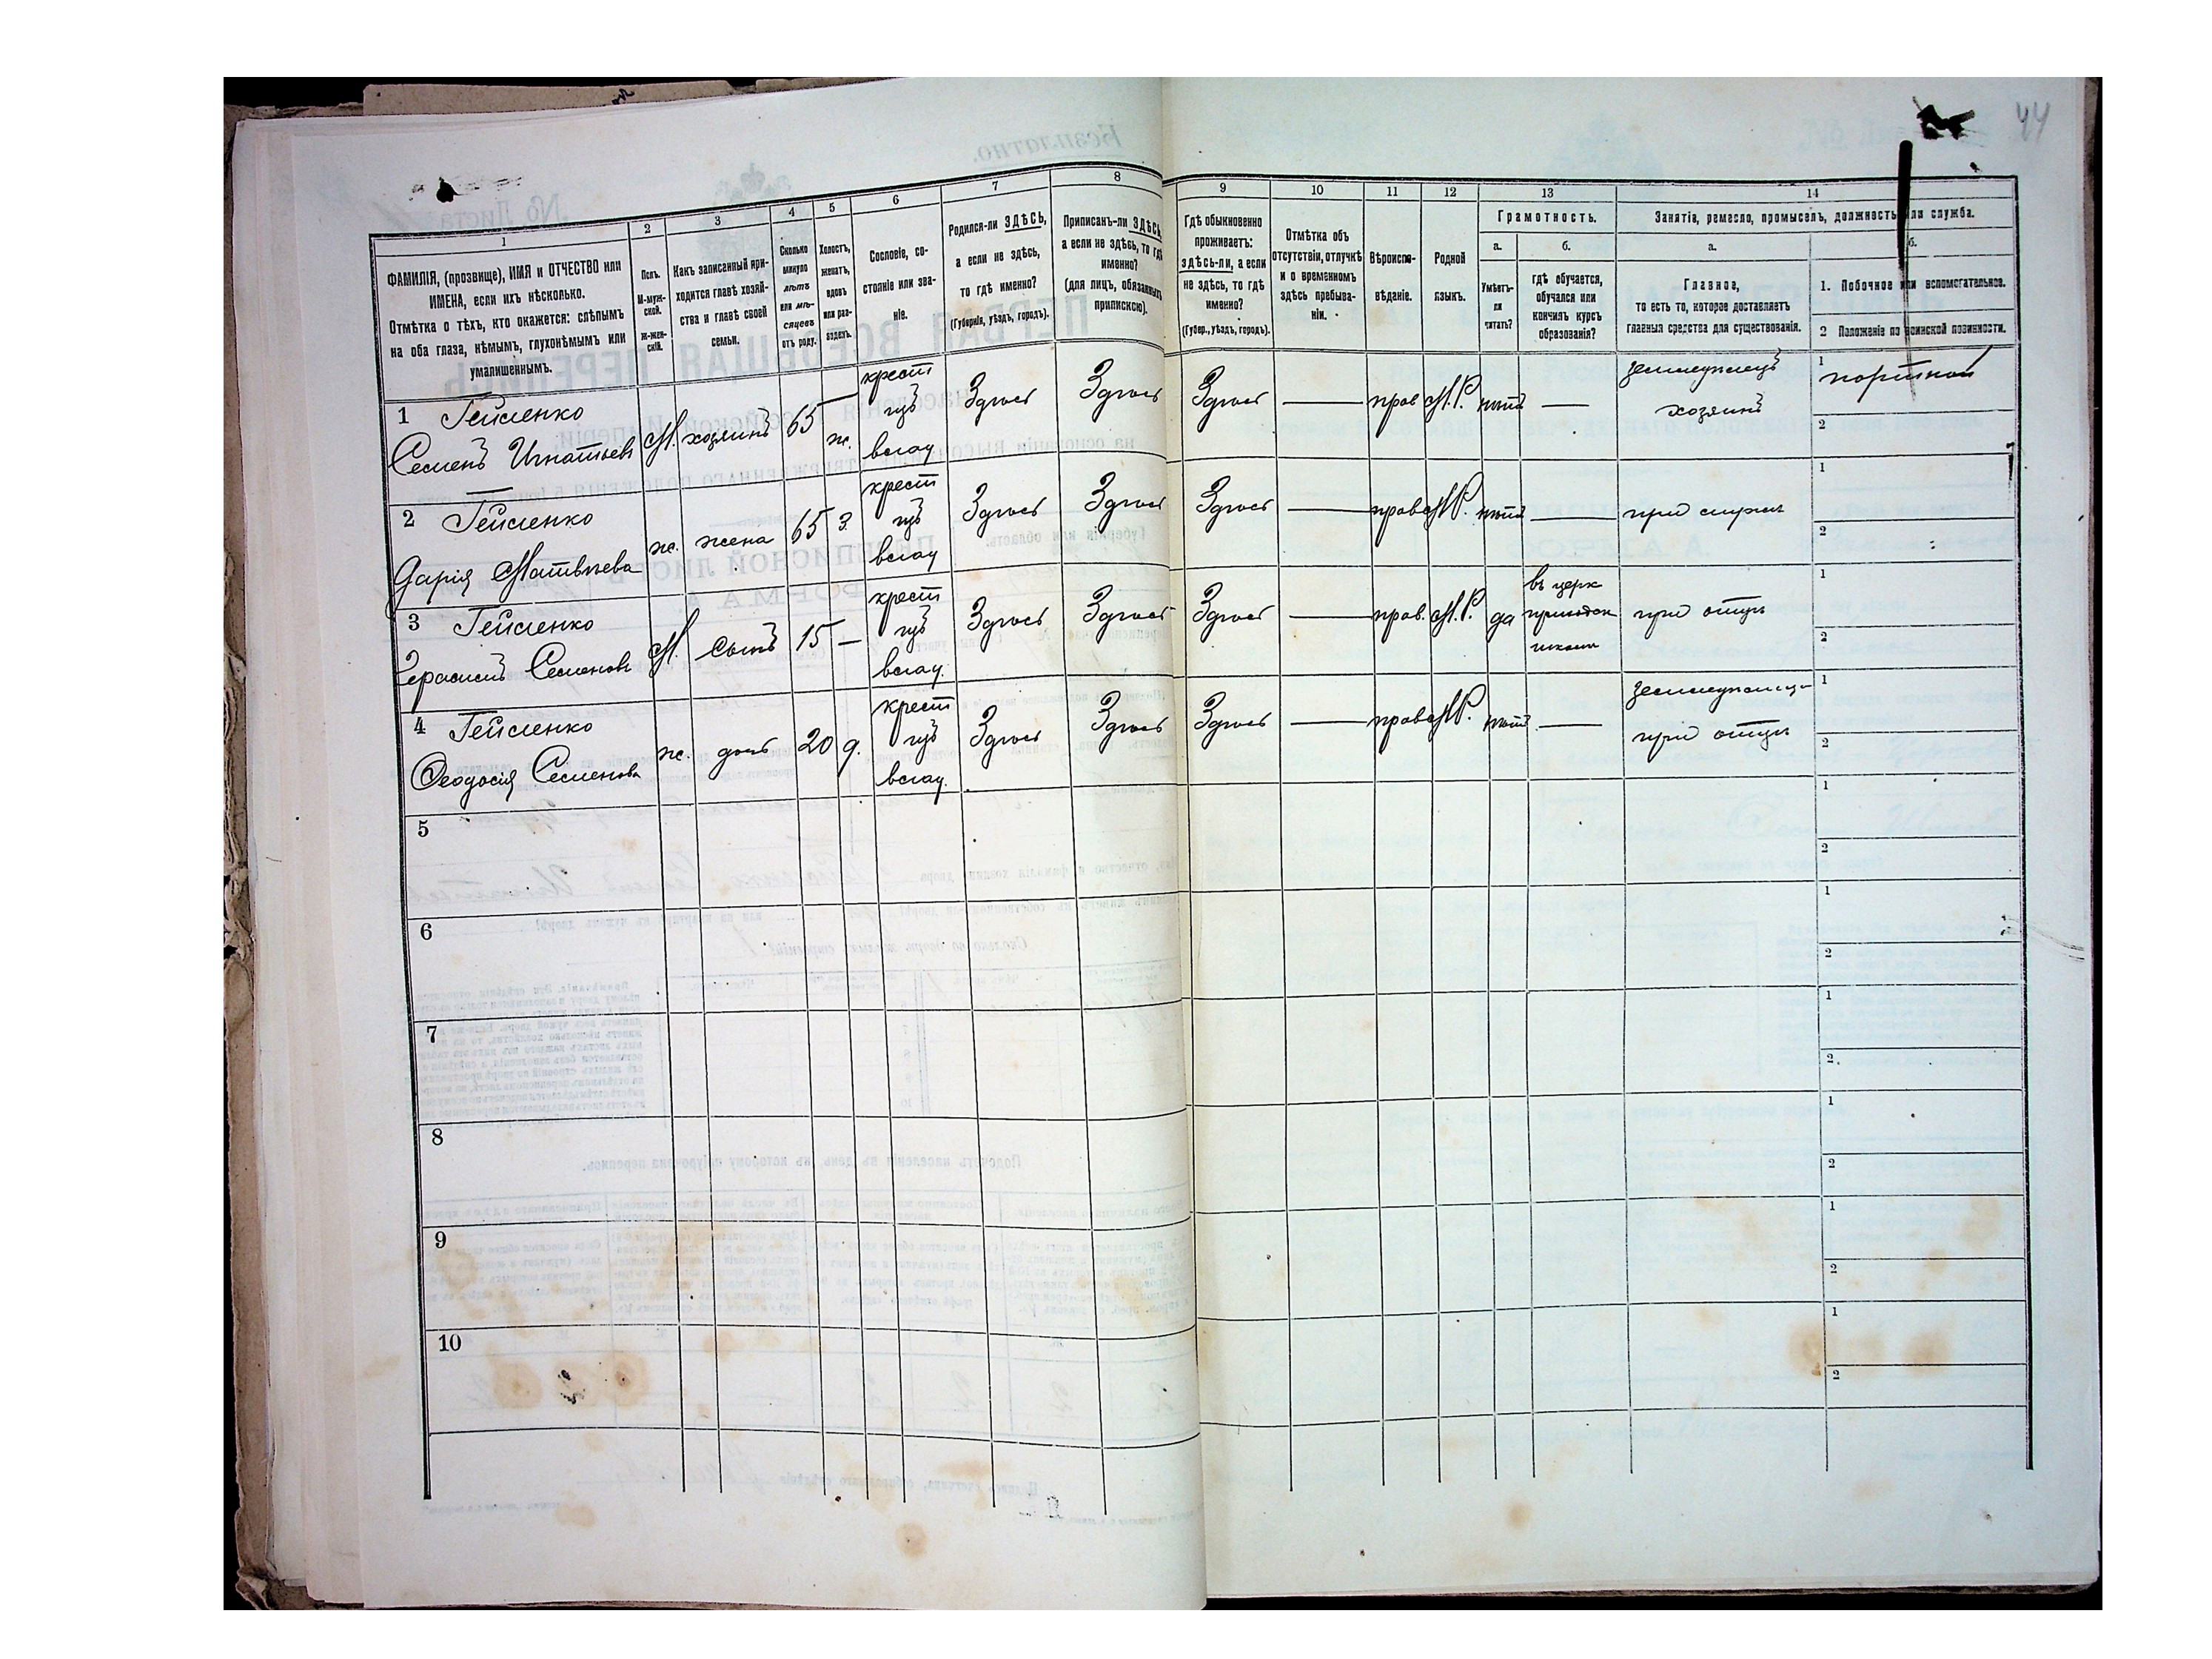 44
1 2 3 4 5 6 7 8 9 10 11 12 13 14
ФАМИЛІЯ, (прозвище), ИМЯ и ОТЧЕСТВО или
ИМЕНА, если ихъ нѣсколько.
Отмѣтка о тѣхъ, кто окажется: слѣпымъ
на оба глаза, нѣмымъ, глухонѣмымъ или
умалишеннымъ.
Полъ.
М-муж-
ской.
Ж-жен-
скій.
Какъ записанный при-
ходится главѣ хозяй-
ства и главѣ своей
семьи.
Сколько
минуло
лѣтъ
или мѣ-
сяцевъ
отъ роду.
Холостъ,
женатъ,
вдовъ
или раз-
веденъ.
Сословіе, со-
стояніе или зва-
ніе.
Родился-ли ЗДѢСЬ,
а если не здѣсь,
то гдѣ именно?
(Губернія, уѣздъ, городъ).
Приписанъ-ли ЗДѢСЬ,
а если не здѣсь, то гдѣ
именно?
(для лицъ, обязанныхъ
припискою).
Гдѣ обыкновенно
проживаетъ:
здѣсь-ли, а если
не здѣсь, то гдѣ
именно?
(Губер., уѣздъ, городъ).
Отмѣтка объ
отсутствіи, отлучкѣ
и о временномъ
здѣсь пребыва-
ніи.
Вѣроиспо-
вѣданіе.
Родной
языкъ.
Грамотность.
а. б.
Умѣетъ-
ли
читать?
гдѣ обучается,
обучался или
кончилъ курсъ
образованія?
Занятія, ремесло, промыселъ, должность или служба.
а. б.
Главное,
то есть то, которое доставляетъ
главныя средства для существованія.
1. Побочное или вспомогательное.
2 Положеніе по воинской повинности.
1 Гейсленко
Семенъ Игнатьевъ М. хозяинъ 65 ж. крест изъ Здѣсь Здѣсь Здѣсь — прав М.Р. нѣтъ — земледѣлецъ хозяинъ 1 портной 2
2 Гейсленко
Дарія Матвѣева ж. жена 65 З. крест изъ Здѣсь Здѣсь Здѣсь — прав М.Р. нѣтъ — при 1 2
3 Гейсленко
Герасимъ Семеновъ М. сынъ 15 — крест изъ Здѣсь Здѣсь Здѣсь — прав. М.Р. да въ церк приходск школѣ при отцѣ 1 2
4 Гейсленко
Ѳеодосія Семенова ж. дочь 20 д. крест изъ Здѣсь Здѣсь Здѣсь — прав М.Р. нѣтъ — при отцѣ 1 2
5 1 2
6 1 2
7 1 2
8 1 2
9 1 2
10 1 2